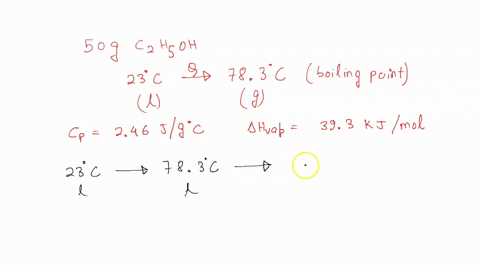 50g C₂H₅OH
23°C —Q→ 78.3°C (boiling point)
(l) (g)
Cp = 2.46 J/g°C ΔHvap = 39.3 KJ/mol
23°C → 78.3°C →
l l